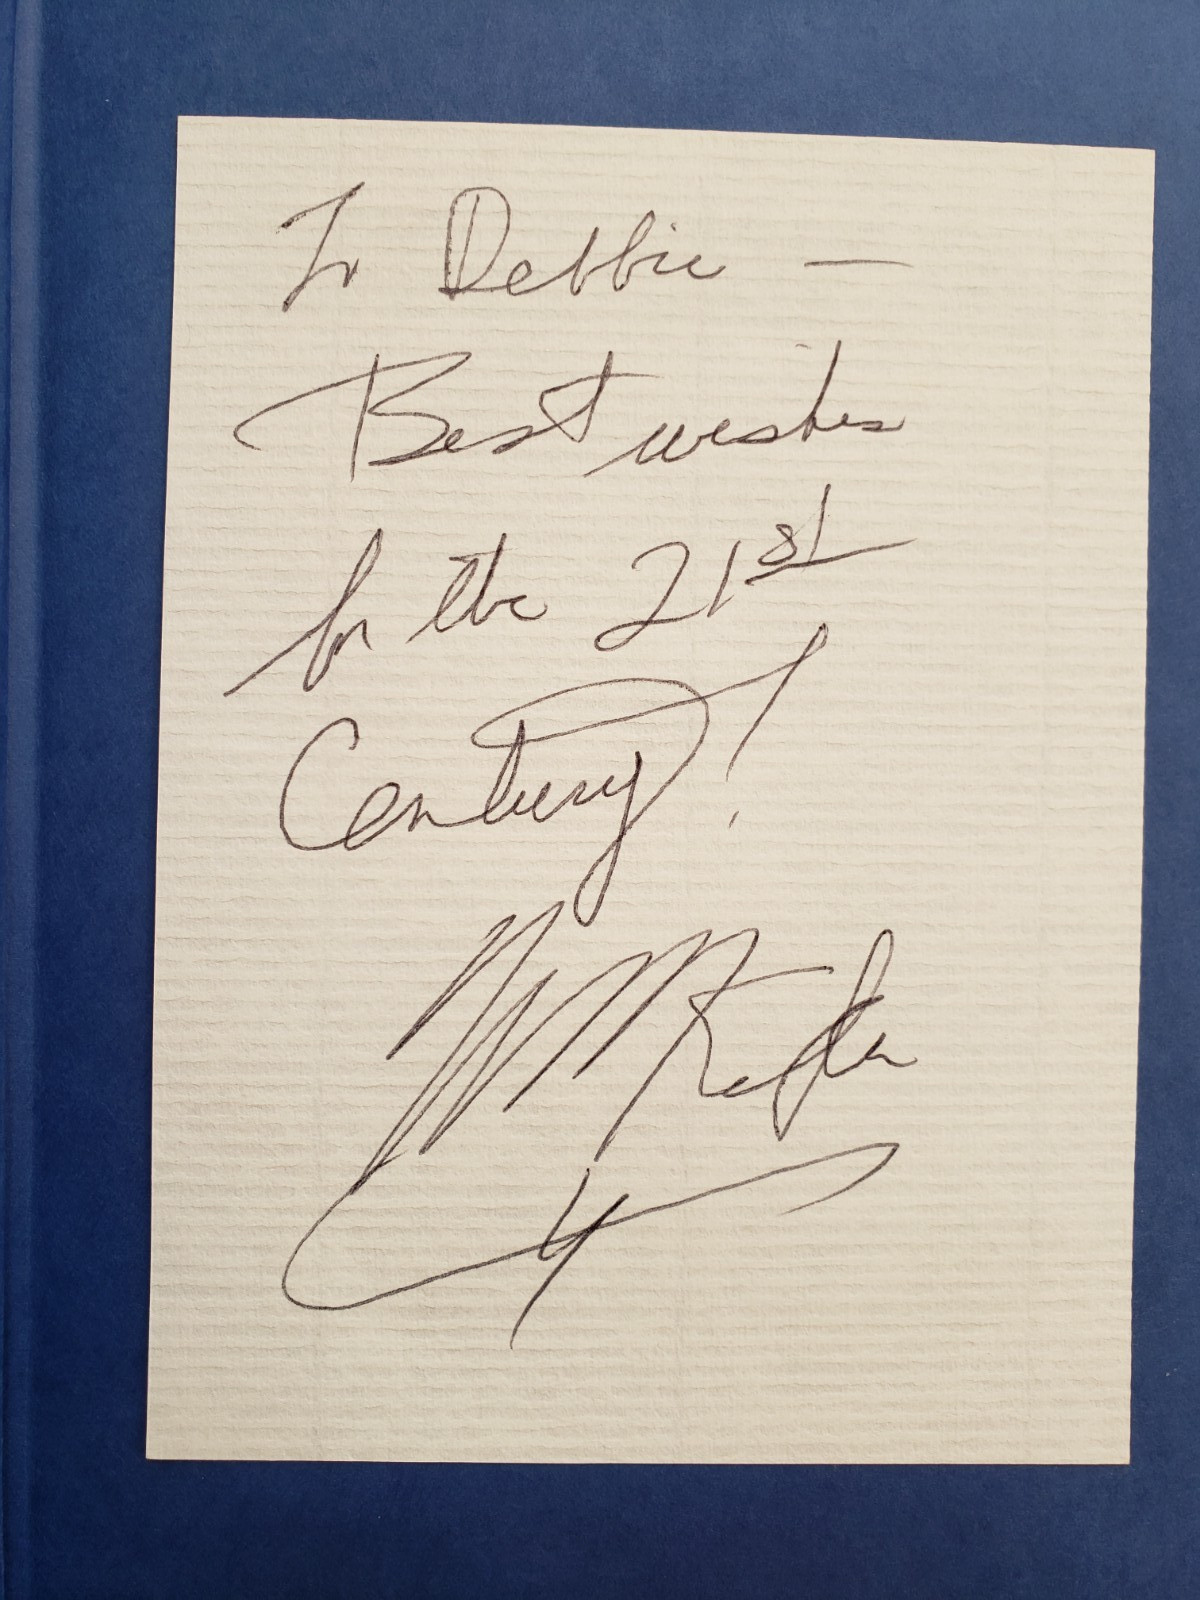 To Debbie —
Best wishes
for the 21st
Century!